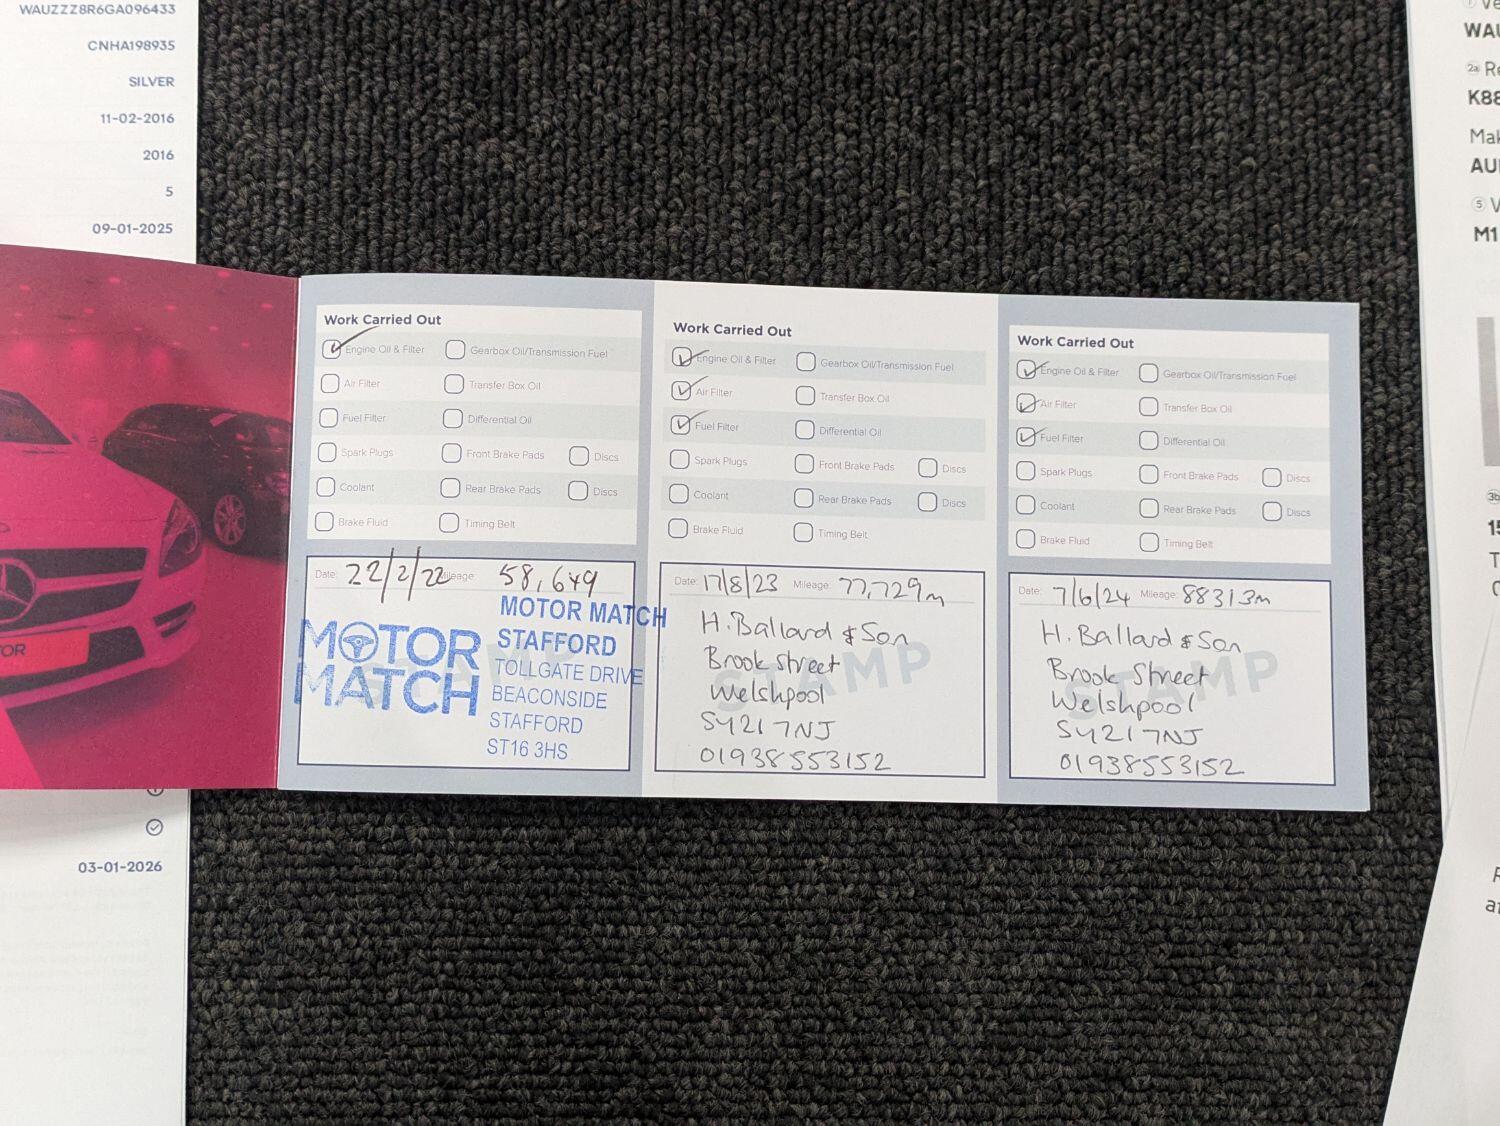 WAUZZZ8R6GA096433
CNHA198935
SILVER
11-02-2016
2016
5
09-01-2025
03-01-2026
Work Carried Out
Engine Oil & Filter Gearbox Oil/Transmission Fuel
Air Filter Transfer Box Oil
Fuel Filter Differential Oil
Spark Plugs Front Brake Pads Discs
Coolant Rear Brake Pads Discs
Brake Fluid Timing Belt
Date: 22/2/22 Mileage: 58,649
MOTOR MATCH
MOTOR MATCH
STAFFORD
TOLLGATE DRIVE
BEACONSIDE
STAFFORD
ST16 3HS
Work Carried Out
Engine Oil & Filter Gearbox Oil/Transmission Fuel
Air Filter Transfer Box Oil
Fuel Filter Differential Oil
Spark Plugs Front Brake Pads Discs
Coolant Rear Brake Pads Discs
Brake Fluid Timing Belt
Date: 17/8/23 Mileage: 77,729m
STAMP
H. Ballard & Son
Brook Street
Welshpool
SY21 7NJ
01938553152
Work Carried Out
Engine Oil & Filter Gearbox Oil/Transmission Fuel
Air Filter Transfer Box Oil
Fuel Filter Differential Oil
Spark Plugs Front Brake Pads Discs
Coolant Rear Brake Pads Discs
Brake Fluid Timing Belt
Date: 7/6/24 Mileage: 88313m
STAMP
H. Ballard & Son
Brook Street
Welshpool
SY21 7NJ
01938553152
WAU
2a Re
K88
Mak
AU
5 V
M1
3b